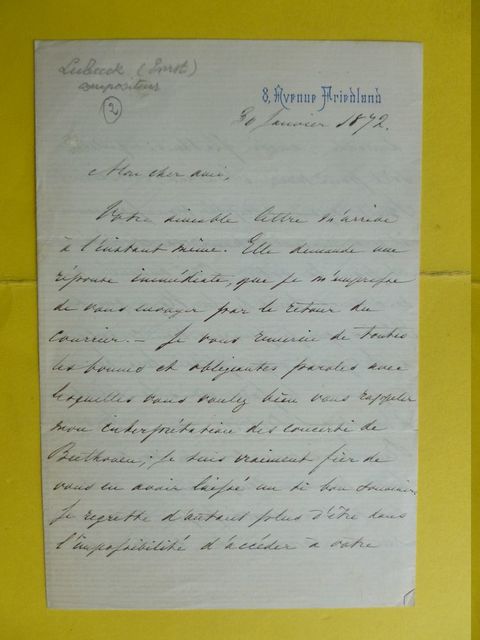 Lubeck (Ernst)
compositeur
2
8, Avenue Friedland
30 Janvier 1872.
Mon cher ami,
Votre aimable lettre m'arrive
à l'instant même. Elle demande une
réponse immédiate, que je m'empresse
de vous envoyer par le retour du
courrier. — Je vous remercie de toutes
les bonnes et obligeantes paroles avec
lesquelles vous voulez bien vous rappeler
mon interprétation des concerti de
Beethoven; je suis vraiment fier de
vous en avoir laissé un si bon souvenir.
Je regrette d'autant plus d'être dans
l'impossibilité d'accéder à votre